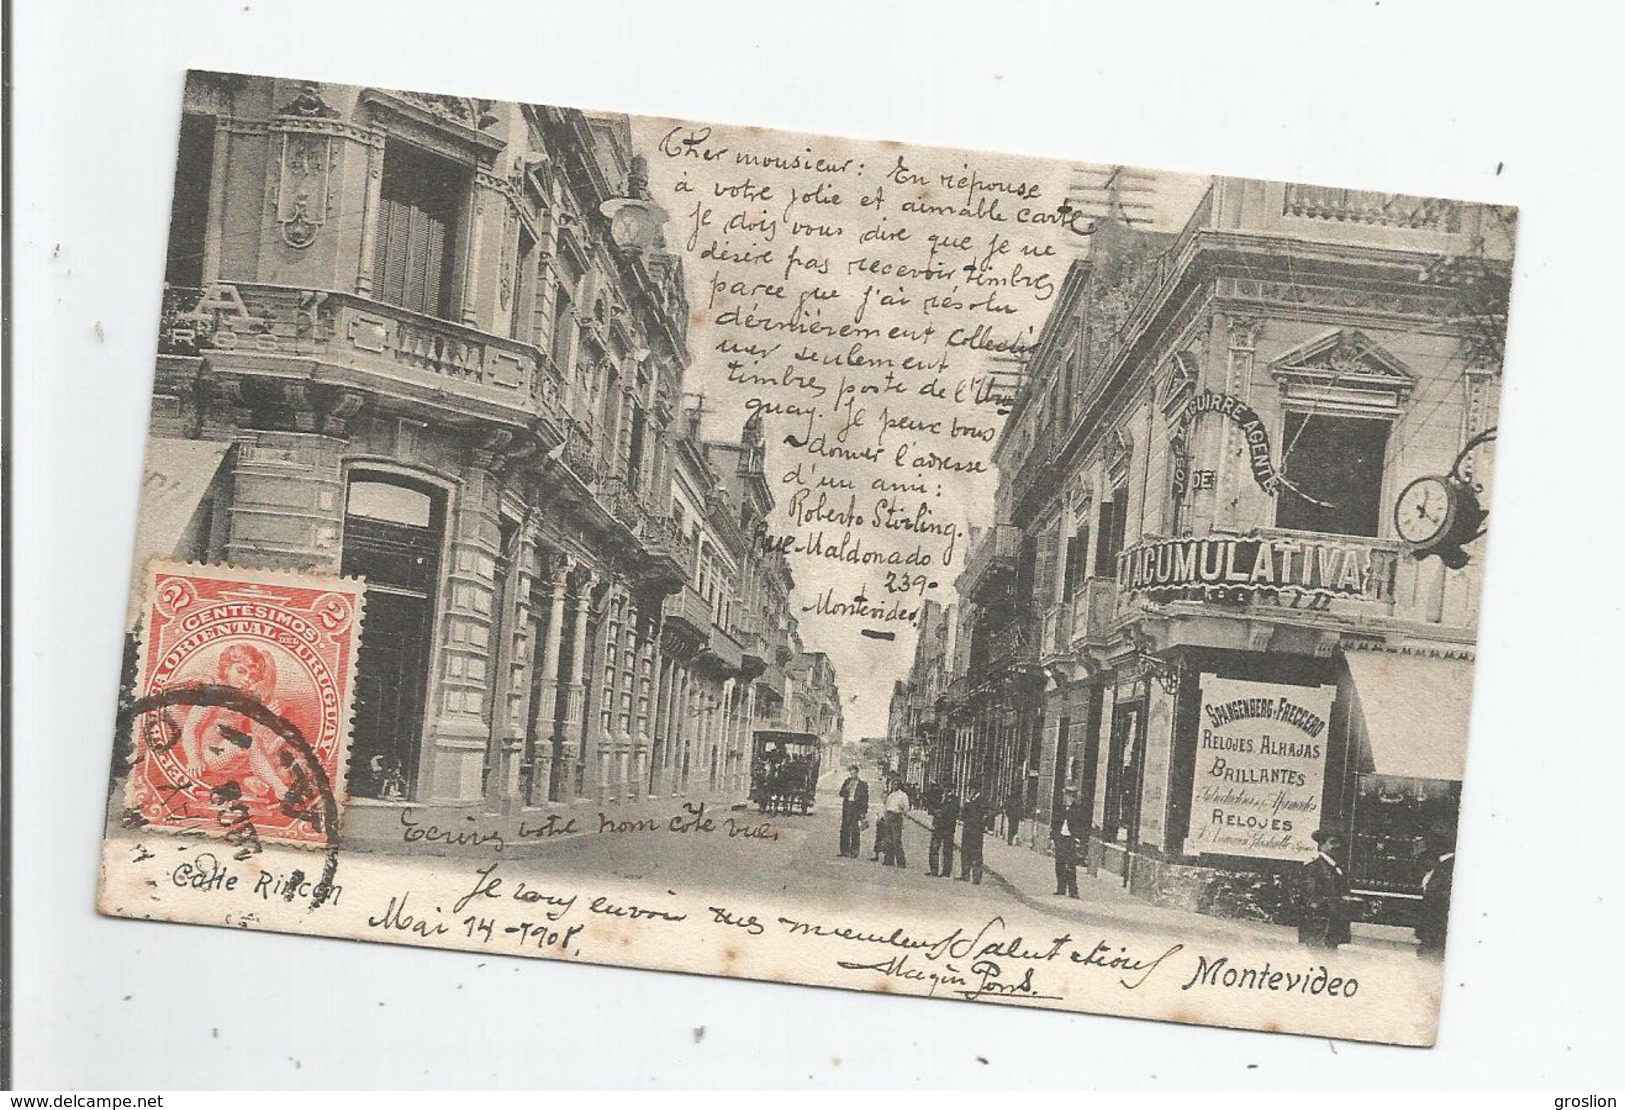 Cher monsieur: En réponse
à votre jolie et aimable carte
je dois vous dire que je ne
désire pas recevoir timbres
parce que j'ai résolu
dérnièrement collecti
ner seulement
timbres poste de l'Uru
guay. Je peux vous
donner l'adresse
d'un ami:
Roberto Stirling.
Rue Maldonado
239-
Montevideo
JOSE M. AGUIRRE AGENTE
DE
ACUMULATIVA
SPANGENBERG Y FRECCERO
RELOJES. ALHAJAS
BRILLANTES
RELOJES
2 CENTÉSIMOS 2
REPUBLICA ORIENTAL DEL URUGUAY
Ecrivez votre nom coté vue.
Calle Rincón
Je vous envoie mes meilleurs Salutations
Mai 14-1908.
Magin Pons.
Montevideo
www.delcampe.net
groslion